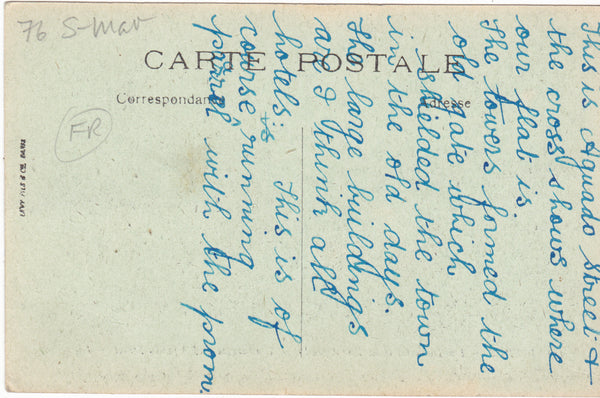 76 S-Mar
CARTE POSTALE
Correspondance
Adresse
FR
LEVY FILS & CIE. PARIS
This is Aguado Street &
the cross shows where
our flat is
The towers formed the
old gate which
shielded the town
in the old days.
The large buildings
are I think all
hotels. This is of
corse running
parrel with the prom.